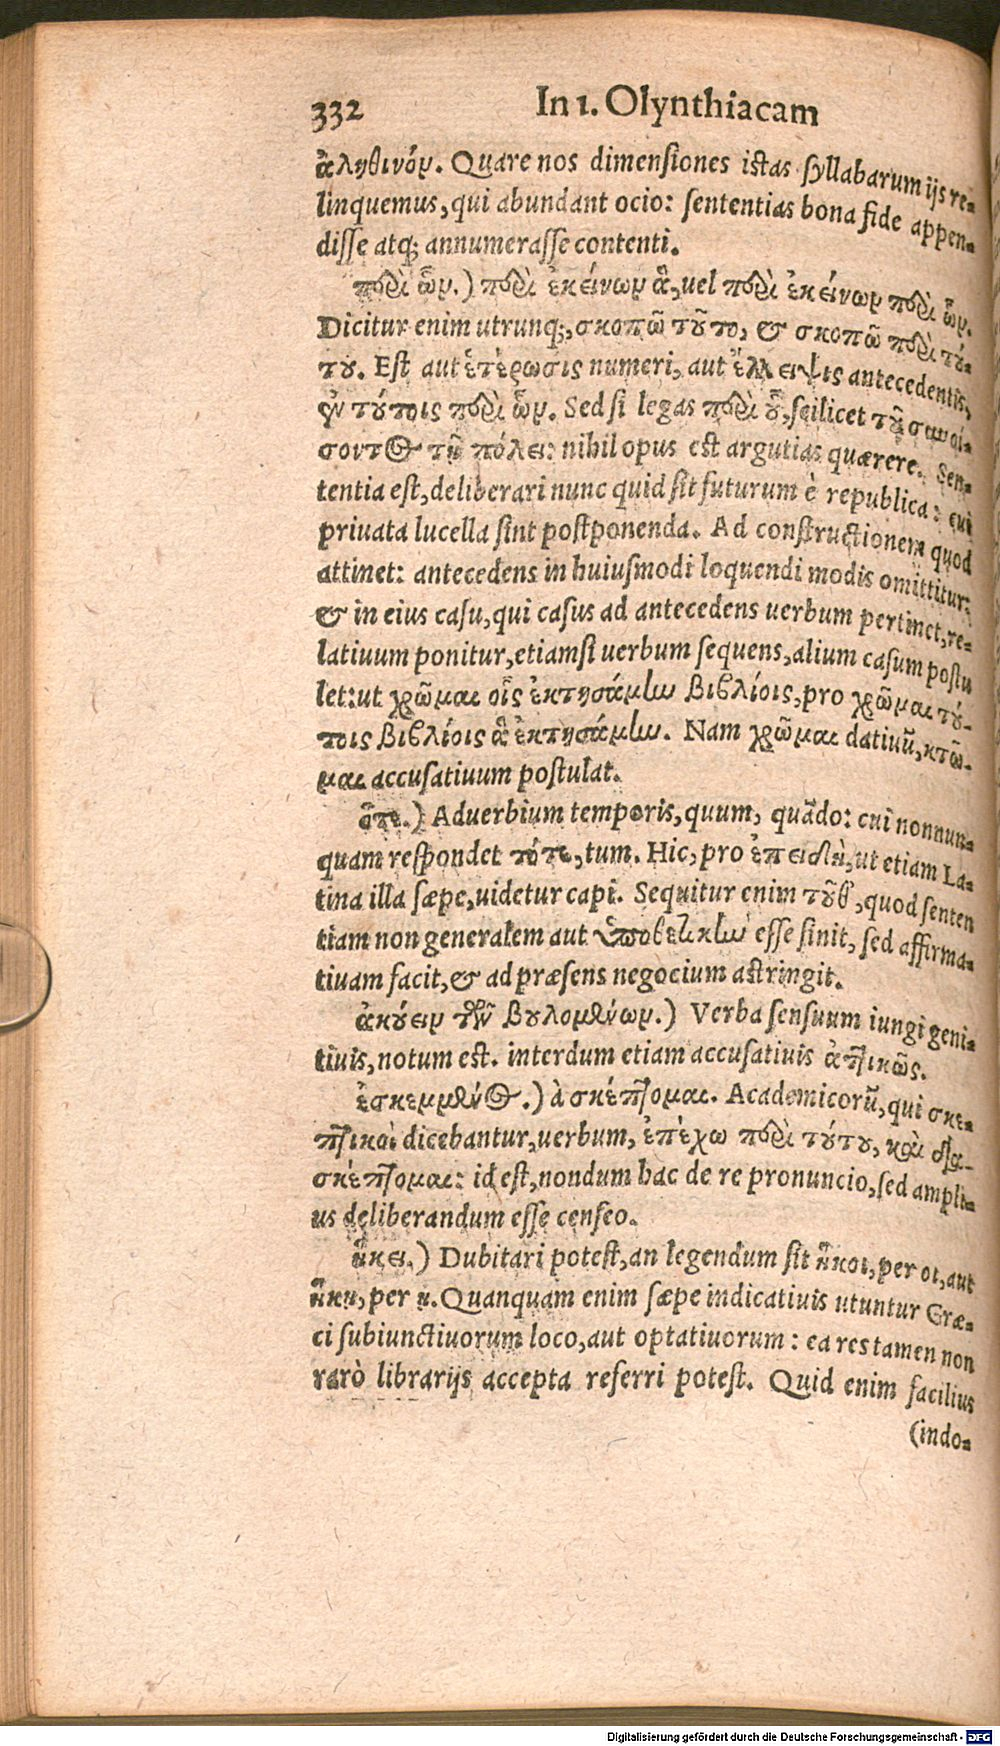 332 In 1. Olynthiacam
ἀληθινόν. Quare nos dimensiones istas syllabarum ijs re-
linquemus, qui abundant ocio: sententias bona fide appen-
disse atq; annumerasse contenti.
περὶ ὧν.) περὶ ἐκείνων ἃ, uel περὶ ἐκείνων περὶ ὧν.
Dicitur enim utrunq;, σκοπῶ τοῦτο, & σκοπῶ περὶ τού-
του. Est aut ἑτέρωσις numeri, aut ἔλλειψις antecedentis,
ἐν τούτοις περὶ ὧν. Sed si legas περὶ οὗ, scilicet τοῦ συνοί-
σοντος τῇ πόλει: nihil opus est argutias quærere. Sen-
tentia est, deliberari nunc quid sit futurum è republica: cui
priuata lucella sint postponenda. Ad constructionem quod
attinet: antecedens in huiusmodi loquendi modis omittitur:
& in eius casu, qui casus ad antecedens uerbum pertinet, re-
latiuum ponitur, etiamsi uerbum sequens, alium casum postu
let: ut χρῶμαι οἷς ἐκτησάμην βιβλίοις, pro χρῶμαι τού-
τοις βιβλίοις ἃ ἐκτησάμην. Nam χρῶμαι datiuũ, κτῶ-
μαι accusatiuum postulat.
ὅτε.) Aduerbium temporis, quum, quãdo: cui nonnun-
quam respondet τότε, tum. Hic, pro ἐπειδὴ, ut etiam La-
tina illa sæpe, uidetur capi. Sequitur enim τοῦθ', quod senten
tiam non generalem aut ὑποθετικὴν esse sinit, sed affirma-
tiuam facit, & ad præsens negocium astringit.
ἀκούειν τῶν βουλομένων.) Verba sensuum iungi geni-
tiuis, notum est. interdum etiam accusatiuis ἀττικῶς.
ἐσκεμμένος.) à σκέπτομαι. Academicorũ, qui σκε-
πτικοὶ dicebantur, uerbum, ἐπέχω περὶ τούτου, καὶ δια-
σκέπτομαι: id est, nondum hac de re pronuncio, sed ampli-
us deliberandum esse censeo.
ἥκει.) Dubitari potest, an legendum sit ἥκοι, per οι, aut
ἥκη, per η. Quanquam enim sæpe indicatiuis utuntur Græ-
ci subiunctiuorum loco, aut optatiuorum: ea res tamen non
rarò librarijs accepta referri potest. Quid enim facilius
(indo-
Digitalisierung gefördert durch die Deutsche Forschungsgemeinschaft - DFG